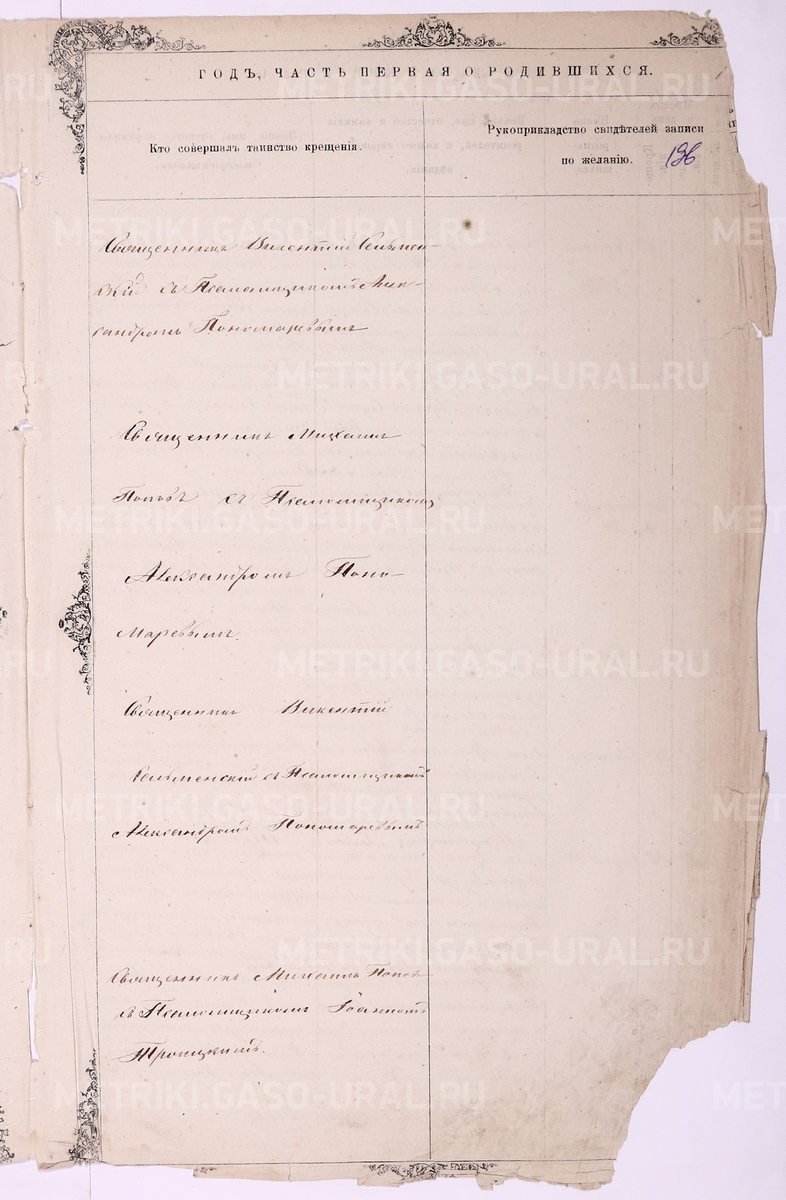 ГОДЪ, ЧАСТЬ ПЕРВАЯ О РОДИВШИХСЯ.
Кто совершалъ таинство крещенія.
Рукоприкладство свидѣтелей записи
по желанію. 196
Священникъ Викентій
съ Псаломщикомъ Алек-
сандромъ Пономаревымъ
Священникъ Михаилъ
Поповъ съ Псаломщикомъ
Александромъ Поно-
маревымъ.
Священникъ Викентій
съ Псаломщикомъ
Александромъ Пономаревымъ
Священникъ Михаилъ Поповъ
съ Псаломщикомъ Іоанномъ
Троицкимъ.
METRIKI.GASO-URAL.RU